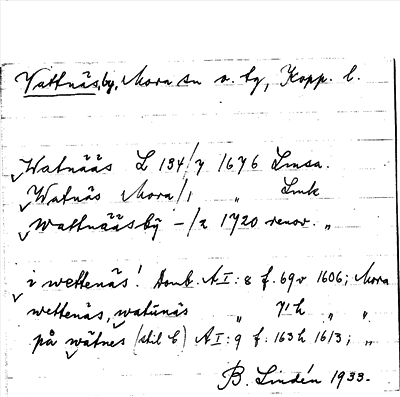 Vattnäs, by, Mora sn o. tg, Kopp. l.
Watnääs L 134/7 1676 Lmsa.
Watnäs Mora/1 " Lmk
Wattnääsbÿ -/2 1720 renov. "
i wettenäs! Domb. AI:8 f. 69v 1606; Mora
wettenäs, watünäs " 71h " "
på wätnes (stil C) AI:9 f. 163h 1613; "
B. Lindén 1933.